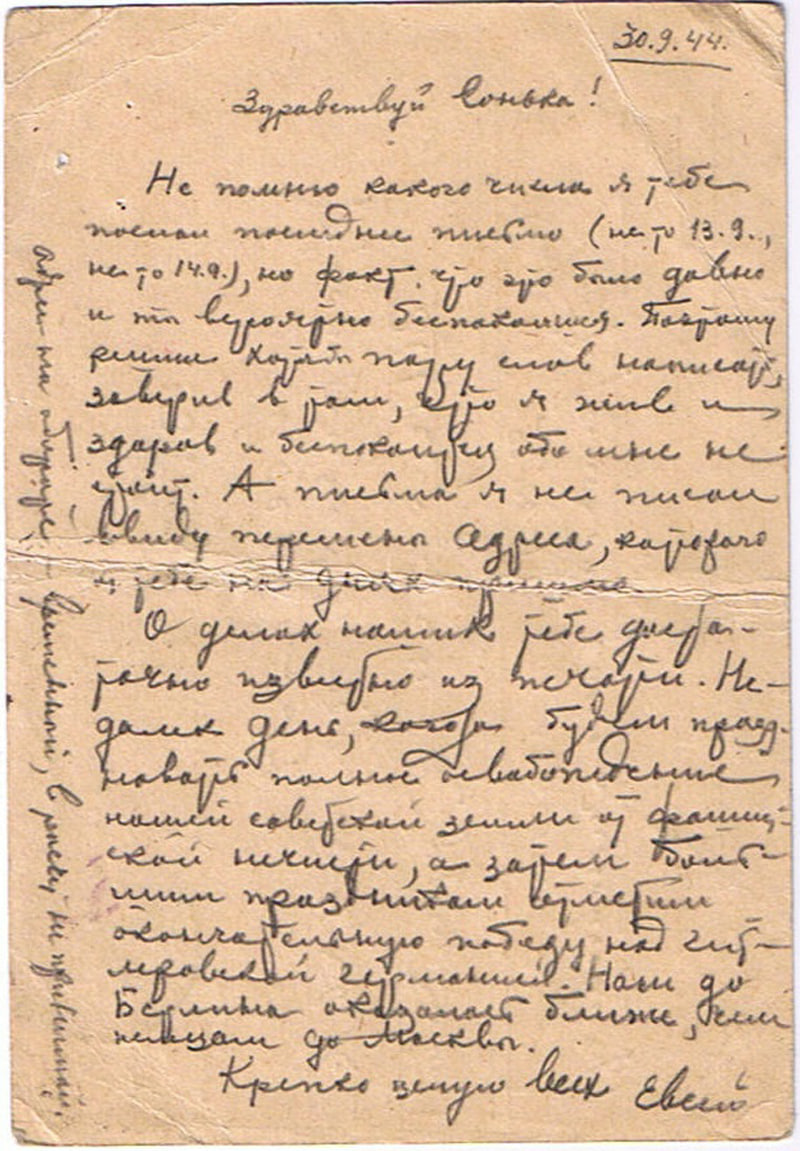 30.9.44.
Здравствуй Сонька!
Не помню какого числа я тебе
послал последнее письмо (не то 13.9.,
не то 14.9.), но факт, что это было давно
и ты вероятно беспокоишься. Поэтому
решил хотя б пару слов написать,
заверив в том, что я жив и
здоров и беспокоиться обо мне не
стоит. А письма я не писал
ввиду перемены адреса, которого
я тебе на днях пришлю.
О делах наших тебе доста-
точно известно из печати. Не-
далек день, когда будем празд-
новать полное освобождение
нашей советской земли от фашист-
ской нечисти, а затем боль-
шим праздником отметим
окончательную победу над гит-
леровской Германией. Нам до
Берлина оказалось ближе, чем
немцам до Москвы.
Крепко целую всех Евсей
на обороте временный,